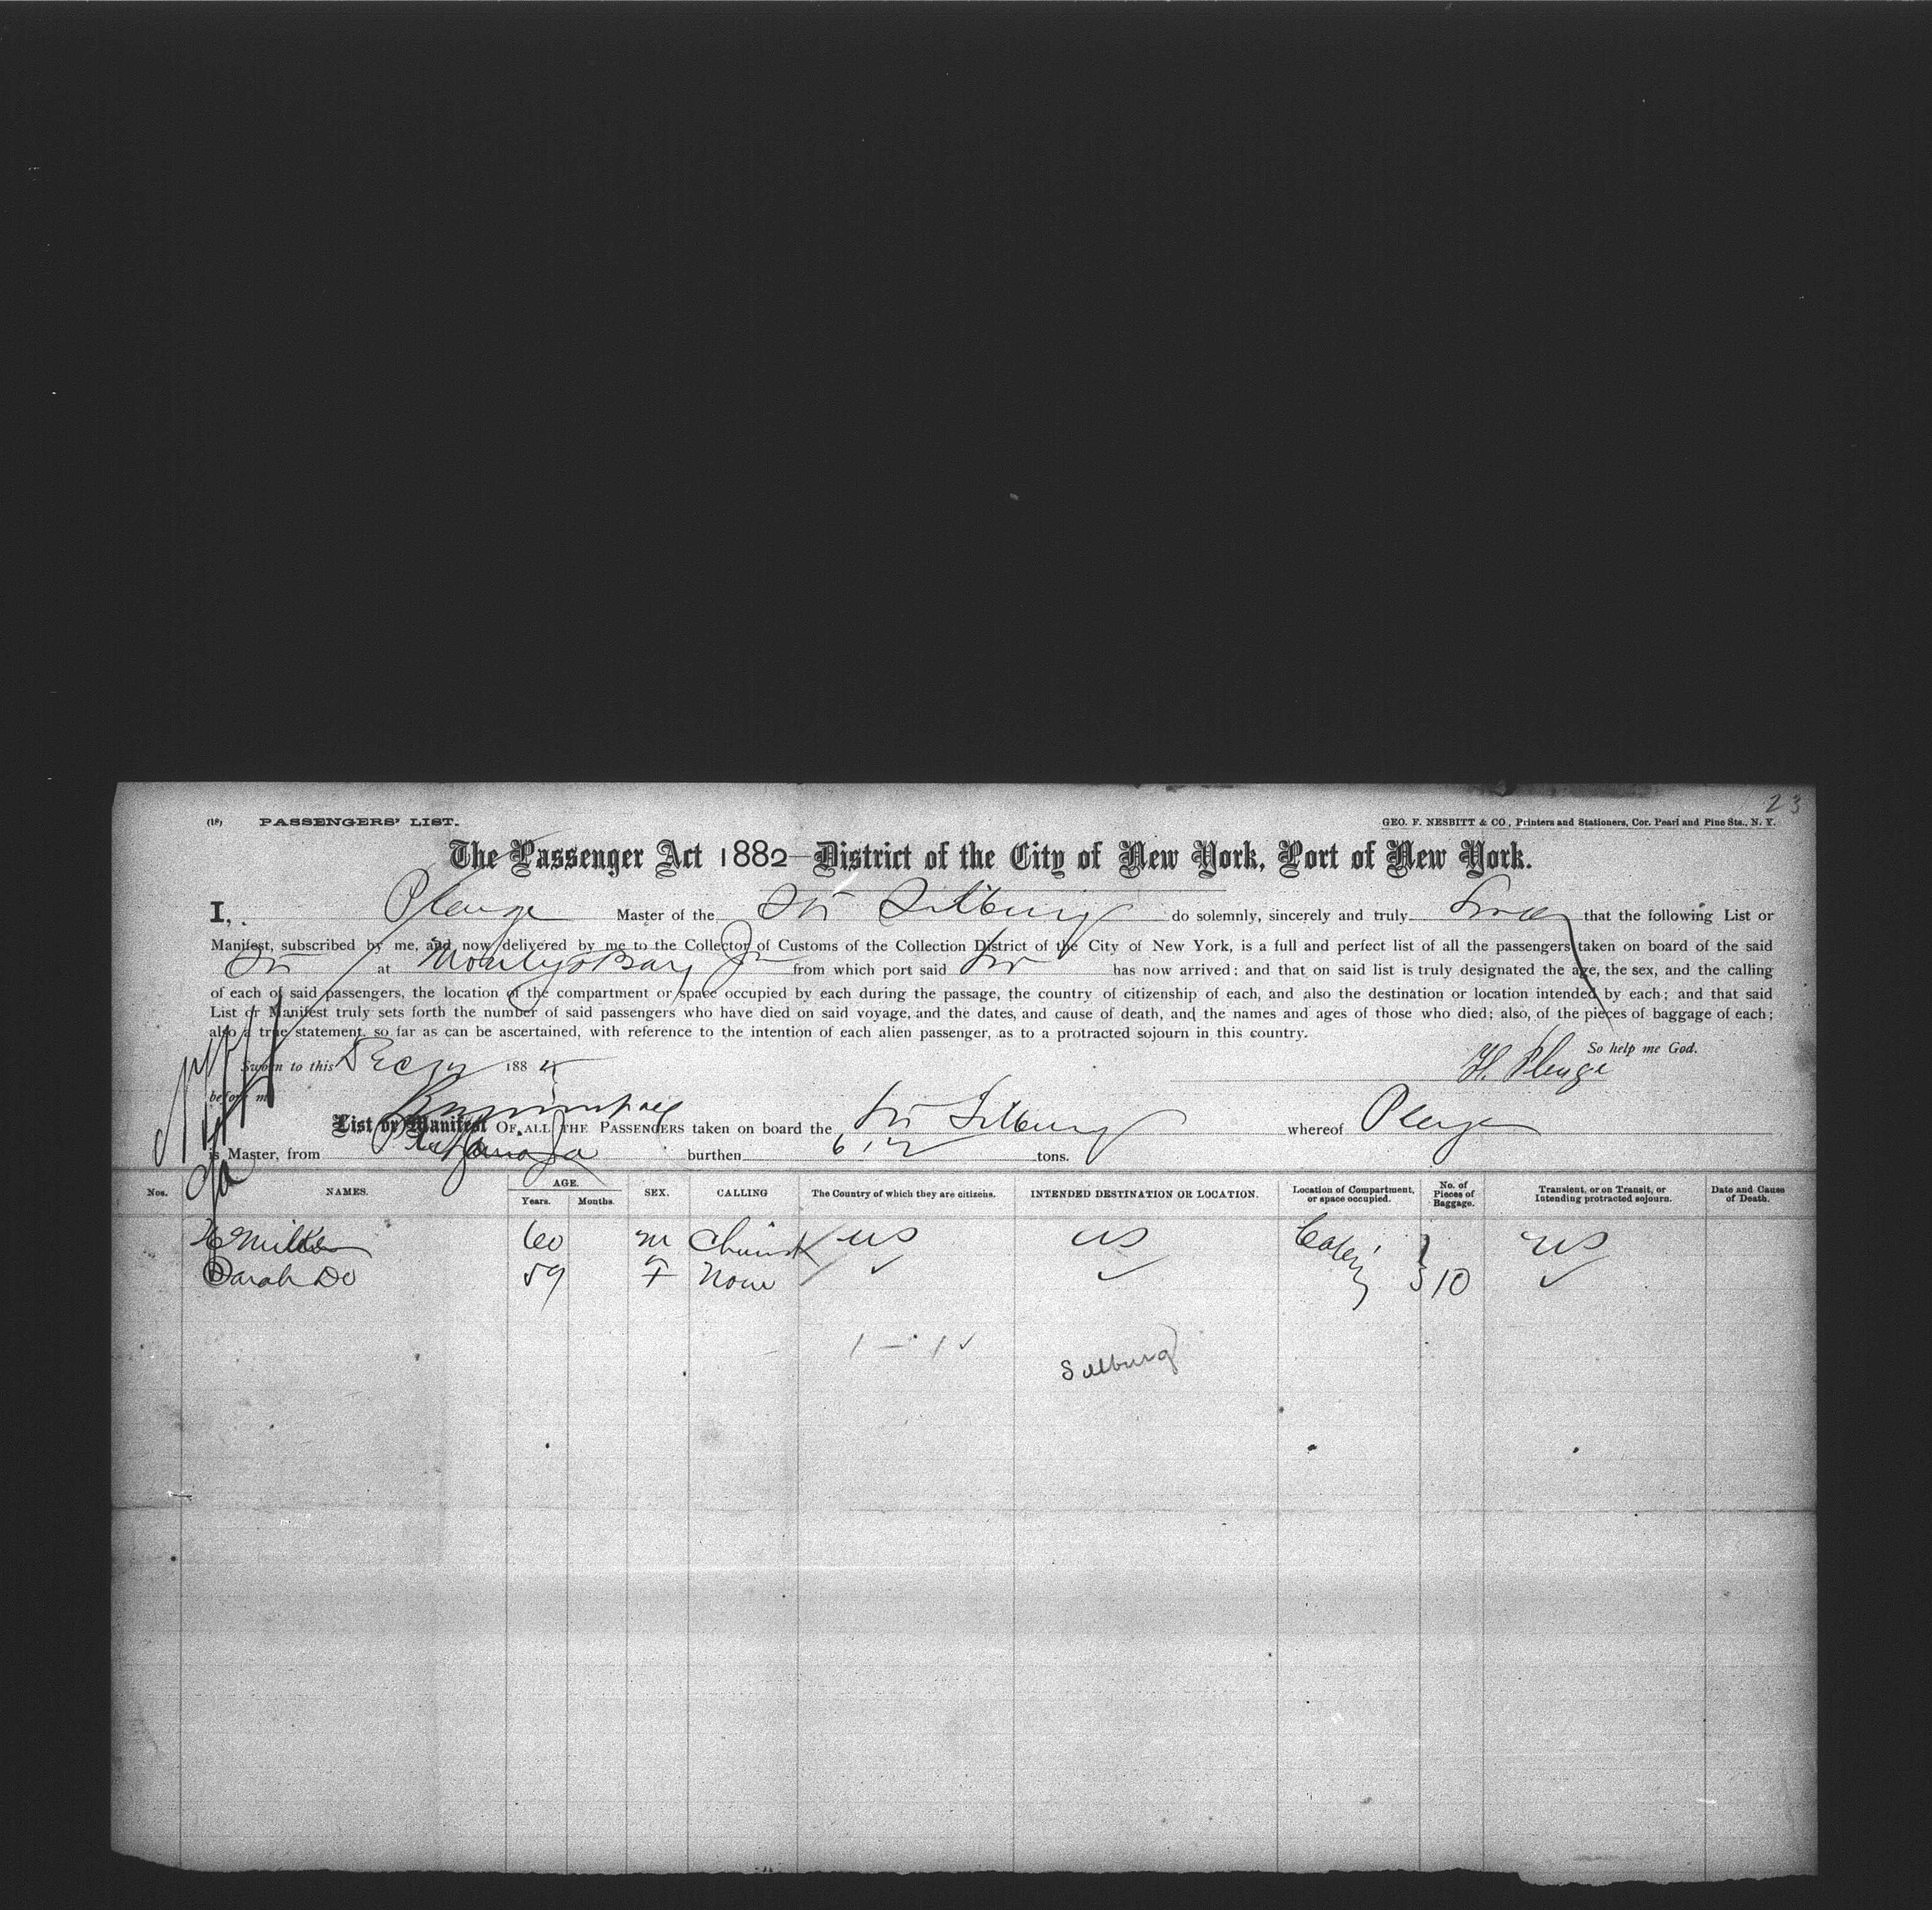 23
(18) PASSENGERS' LIST. GEO. F. NESBITT & CO., Printers and Stationers, Cor. Pearl and Pine Sts., N. Y.
The Passenger Act 1882—District of the City of New York, Port of New York.
I, Plenge Master of the Str do solemnly, sincerely and truly that the following List or
Manifest, subscribed by me, and now delivered by me to the Collector of Customs of the Collection District of the City of New York, is a full and perfect list of all the passengers taken on board of the said
Str at Montego Bay Ja from which port said Str has now arrived: and that on said list is truly designated the age, the sex, and the calling
of each of said passengers, the location of the compartment or space occupied by each during the passage, the country of citizenship of each, and also the destination or location intended by each; and that said
List or Manifest truly sets forth the number of said passengers who have died on said voyage, and the dates, and cause of death, and the names and ages of those who died; also, of the pieces of baggage of each;
also a true statement, so far as can be ascertained, with reference to the intention of each alien passenger, as to a protracted sojourn in this country.
So help me God.
Sworn to this Dec 188 H. Plenge
before me
List or Manifest OF ALL THE PASSENGERS taken on board the Str whereof Plenge
is Master, from burthen tons.
Nos. NAMES. AGE. Years. Months. SEX. CALLING The Country of which they are citizens. INTENDED DESTINATION OR LOCATION. Location of Compartment, or space occupied. No. of Pieces of Baggage. Transient, or on Transit, or Intending protracted sojourn. Date and Cause of Death.
60 M US US Cabin US
Sarah Do 59 F None ✓ ✓ } 10 ✓